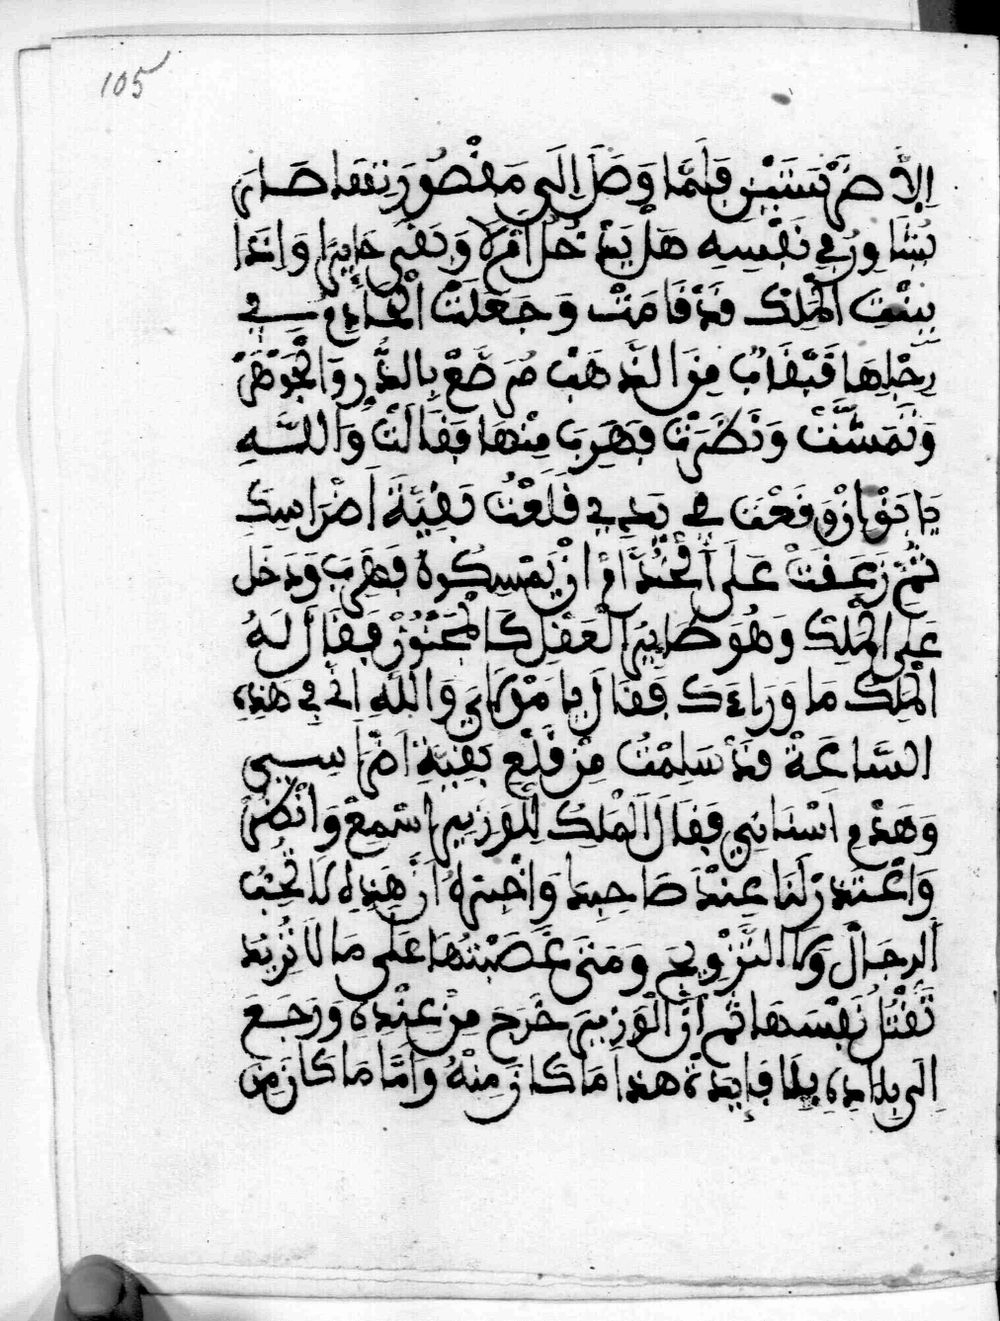 105
إلا ضرستين فلما وصل إلى مقصورتها صار
يشاور في نفسه هل يدخل أم لا وبقى حايرا واذا
ببنت الملك قد قامت وجعلت في
رجلها قبقاب من الذهب مرصع بالدر والجوهر
وتمشت ونظرت فهرب منها فقالت والله
يا وقعت في يدي قلعت بقية اضراسك
ثم زعفت على الخدام ان يمسكوه فهرب ودخل
على الملك وهو طاير العقل كالمجنون فقال له
الملك ما وراءك فقال يا والله اني في هذه
الساعة قد سلمت من قلع بقية
وهذه اسناني فقال الملك للوزير اسمع وانظر
واعتذر لنا عند صاحبك واخبره أن هذه لا تحب
الرجال ولا التزويج ومتى غصبتها على ما لا تريد
تقتل نفسها ثم ان الوزير خرج من عنده ورجع
الى بلاده بلا فايدة هذا ما كان منه واما ما كان من